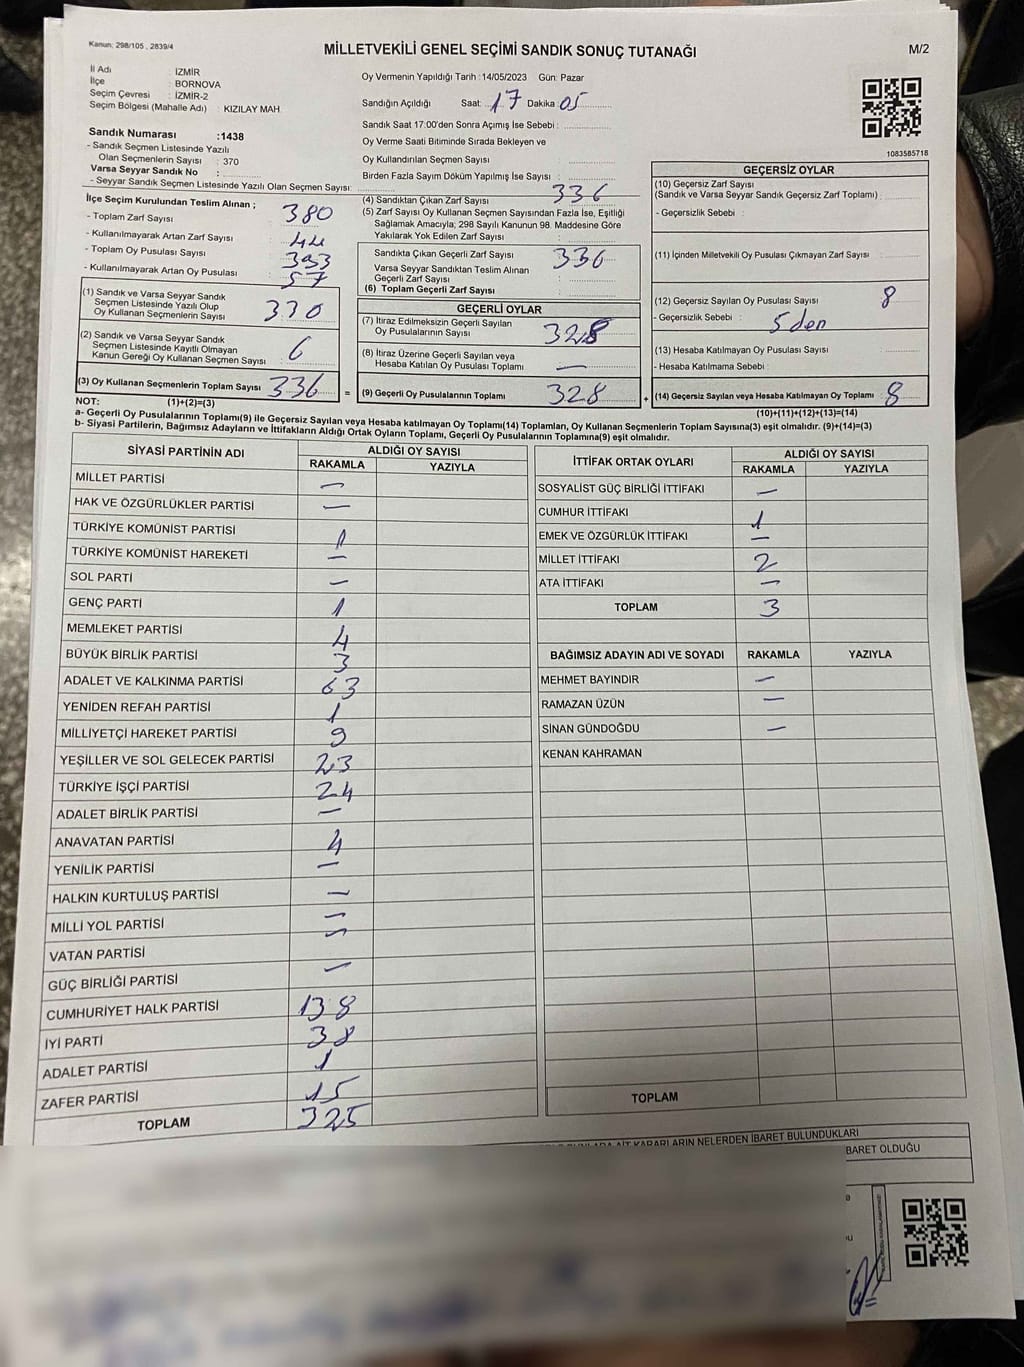 Kanun: 298/105 , 2839/4
MİLLETVEKİLİ GENEL SEÇİMİ SANDIK SONUÇ TUTANAĞI
M/2
İl Adı : İZMİR
İlçe : BORNOVA
Seçim Çevresi : İZMİR-2
Seçim Bölgesi (Mahalle Adı) : KIZILAY MAH.
Oy Vermenin Yapıldığı Tarih : 14/05/2023 Gün: Pazar
Sandığın Açıldığı Saat: 17 Dakika 05
Sandık Saat 17:00'den Sonra Açımış İse Sebebi :
Oy Verme Saati Bitiminde Sırada Bekleyen ve
Oy Kullandırılan Seçmen Sayısı
Birden Fazla Sayım Döküm Yapılmış İse Sayısı :
1083585718
Sandık Numarası :1438
- Sandık Seçmen Listesinde Yazılı
Olan Seçmenlerin Sayısı : 370
Varsa Seyyar Sandık No :
- Seyyar Sandık Seçmen Listesinde Yazılı Olan Seçmen Sayısı:
İlçe Seçim Kurulundan Teslim Alınan ;
- Toplam Zarf Sayısı 380
- Kullanılmayarak Artan Zarf Sayısı 44
- Toplam Oy Pusulası Sayısı 393
- Kullanılmayarak Artan Oy Pusulası 57
(1) Sandık ve Varsa Seyyar Sandık
Seçmen Listesinde Yazılı Olup
Oy Kullanan Seçmenlerin Sayısı 330
(2) Sandık ve Varsa Seyyar Sandık
Seçmen Listesinde Kayıtlı Olmayan
Kanun Gereği Oy Kullanan Seçmen Sayısı 6
(3) Oy Kullanan Seçmenlerin Toplam Sayısı 336
(4) Sandıktan Çıkan Zarf Sayısı 336
(5) Zarf Sayısı Oy Kullanan Seçmen Sayısından Fazla İse, Eşitliği
Sağlamak Amacıyla; 298 Sayılı Kanunun 98. Maddesine Göre
Yakılarak Yok Edilen Zarf Sayısı :
Sandıkta Çıkan Geçerli Zarf Sayısı : 336
Varsa Seyyar Sandıktan Teslim Alınan
Geçerli Zarf Sayısı :
(6) Toplam Geçerli Zarf Sayısı :
GEÇERLİ OYLAR
(7) İtiraz Edilmeksizin Geçerli Sayılan
Oy Pusulalarının Sayısı 328
(8) İtiraz Üzerine Geçerli Sayılan veya
Hesaba Katılan Oy Pusulası Toplamı —
= (9) Geçerli Oy Pusulalarının Toplamı 328
GEÇERSİZ OYLAR
(10) Geçersiz Zarf Sayısı
(Sandık ve Varsa Seyyar Sandık Geçersiz Zarf Toplamı) :
- Geçersizlik Sebebi :
(11) İçinden Milletvekili Oy Pusulası Çıkmayan Zarf Sayısı
(12) Geçersiz Sayılan Oy Pusulası Sayısı 8
- Geçersizlik Sebebi : 5 den
(13) Hesaba Katılmayan Oy Pusulası Sayısı
- Hesaba Katılmama Sebebi
+ (14) Geçersiz Sayılan veya Hesaba Katılmayan Oy Toplamı 8
NOT: (1)+(2)=(3)
(10)+(11)+(12)+(13)=(14)
a- Geçerli Oy Pusulalarının Toplamı(9) ile Geçersiz Sayılan veya Hesaba katılmayan Oy Toplamı(14) Toplamları, Oy Kullanan Seçmenlerin Toplam Sayısına(3) eşit olmalıdır. (9)+(14)=(3)
b- Siyasi Partilerin, Bağımsız Adayların ve İttifakların Aldığı Ortak Oyların Toplamı, Geçerli Oy Pusulalarının Toplamına(9) eşit olmalıdır.
SİYASİ PARTİNİN ADI
ALDIĞI OY SAYISI
RAKAMLA YAZIYLA
MİLLET PARTİSİ —
HAK VE ÖZGÜRLÜKLER PARTİSİ —
TÜRKİYE KOMÜNİST PARTİSİ 1
TÜRKİYE KOMÜNİST HAREKETİ —
SOL PARTİ —
GENÇ PARTİ 1
MEMLEKET PARTİSİ 4
BÜYÜK BİRLİK PARTİSİ 3
ADALET VE KALKINMA PARTİSİ 63
YENİDEN REFAH PARTİSİ 1
MİLLİYETÇİ HAREKET PARTİSİ 9
YEŞİLLER VE SOL GELECEK PARTİSİ 23
TÜRKİYE İŞÇİ PARTİSİ 24
ADALET BİRLİK PARTİSİ —
ANAVATAN PARTİSİ 4
YENİLİK PARTİSİ —
HALKIN KURTULUŞ PARTİSİ —
MİLLİ YOL PARTİSİ —
VATAN PARTİSİ —
GÜÇ BİRLİĞİ PARTİSİ —
CUMHURİYET HALK PARTİSİ 138
İYİ PARTİ 38
ADALET PARTİSİ 1
ZAFER PARTİSİ 15
TOPLAM 325
İTTİFAK ORTAK OYLARI
ALDIĞI OY SAYISI
RAKAMLA YAZIYLA
SOSYALİST GÜÇ BİRLİĞİ İTTİFAKI —
CUMHUR İTTİFAKI 1
EMEK VE ÖZGÜRLÜK İTTİFAKI —
MİLLET İTTİFAKI 2
ATA İTTİFAKI —
TOPLAM 3
BAĞIMSIZ ADAYIN ADI VE SOYADI RAKAMLA YAZIYLA
MEHMET BAYINDIR —
RAMAZAN ÜZÜN —
SİNAN GÜNDOĞDU —
KENAN KAHRAMAN
TOPLAM
KARARLARIN NELERDEN İBARET BULUNDUKLARI
BARET OLDUĞU